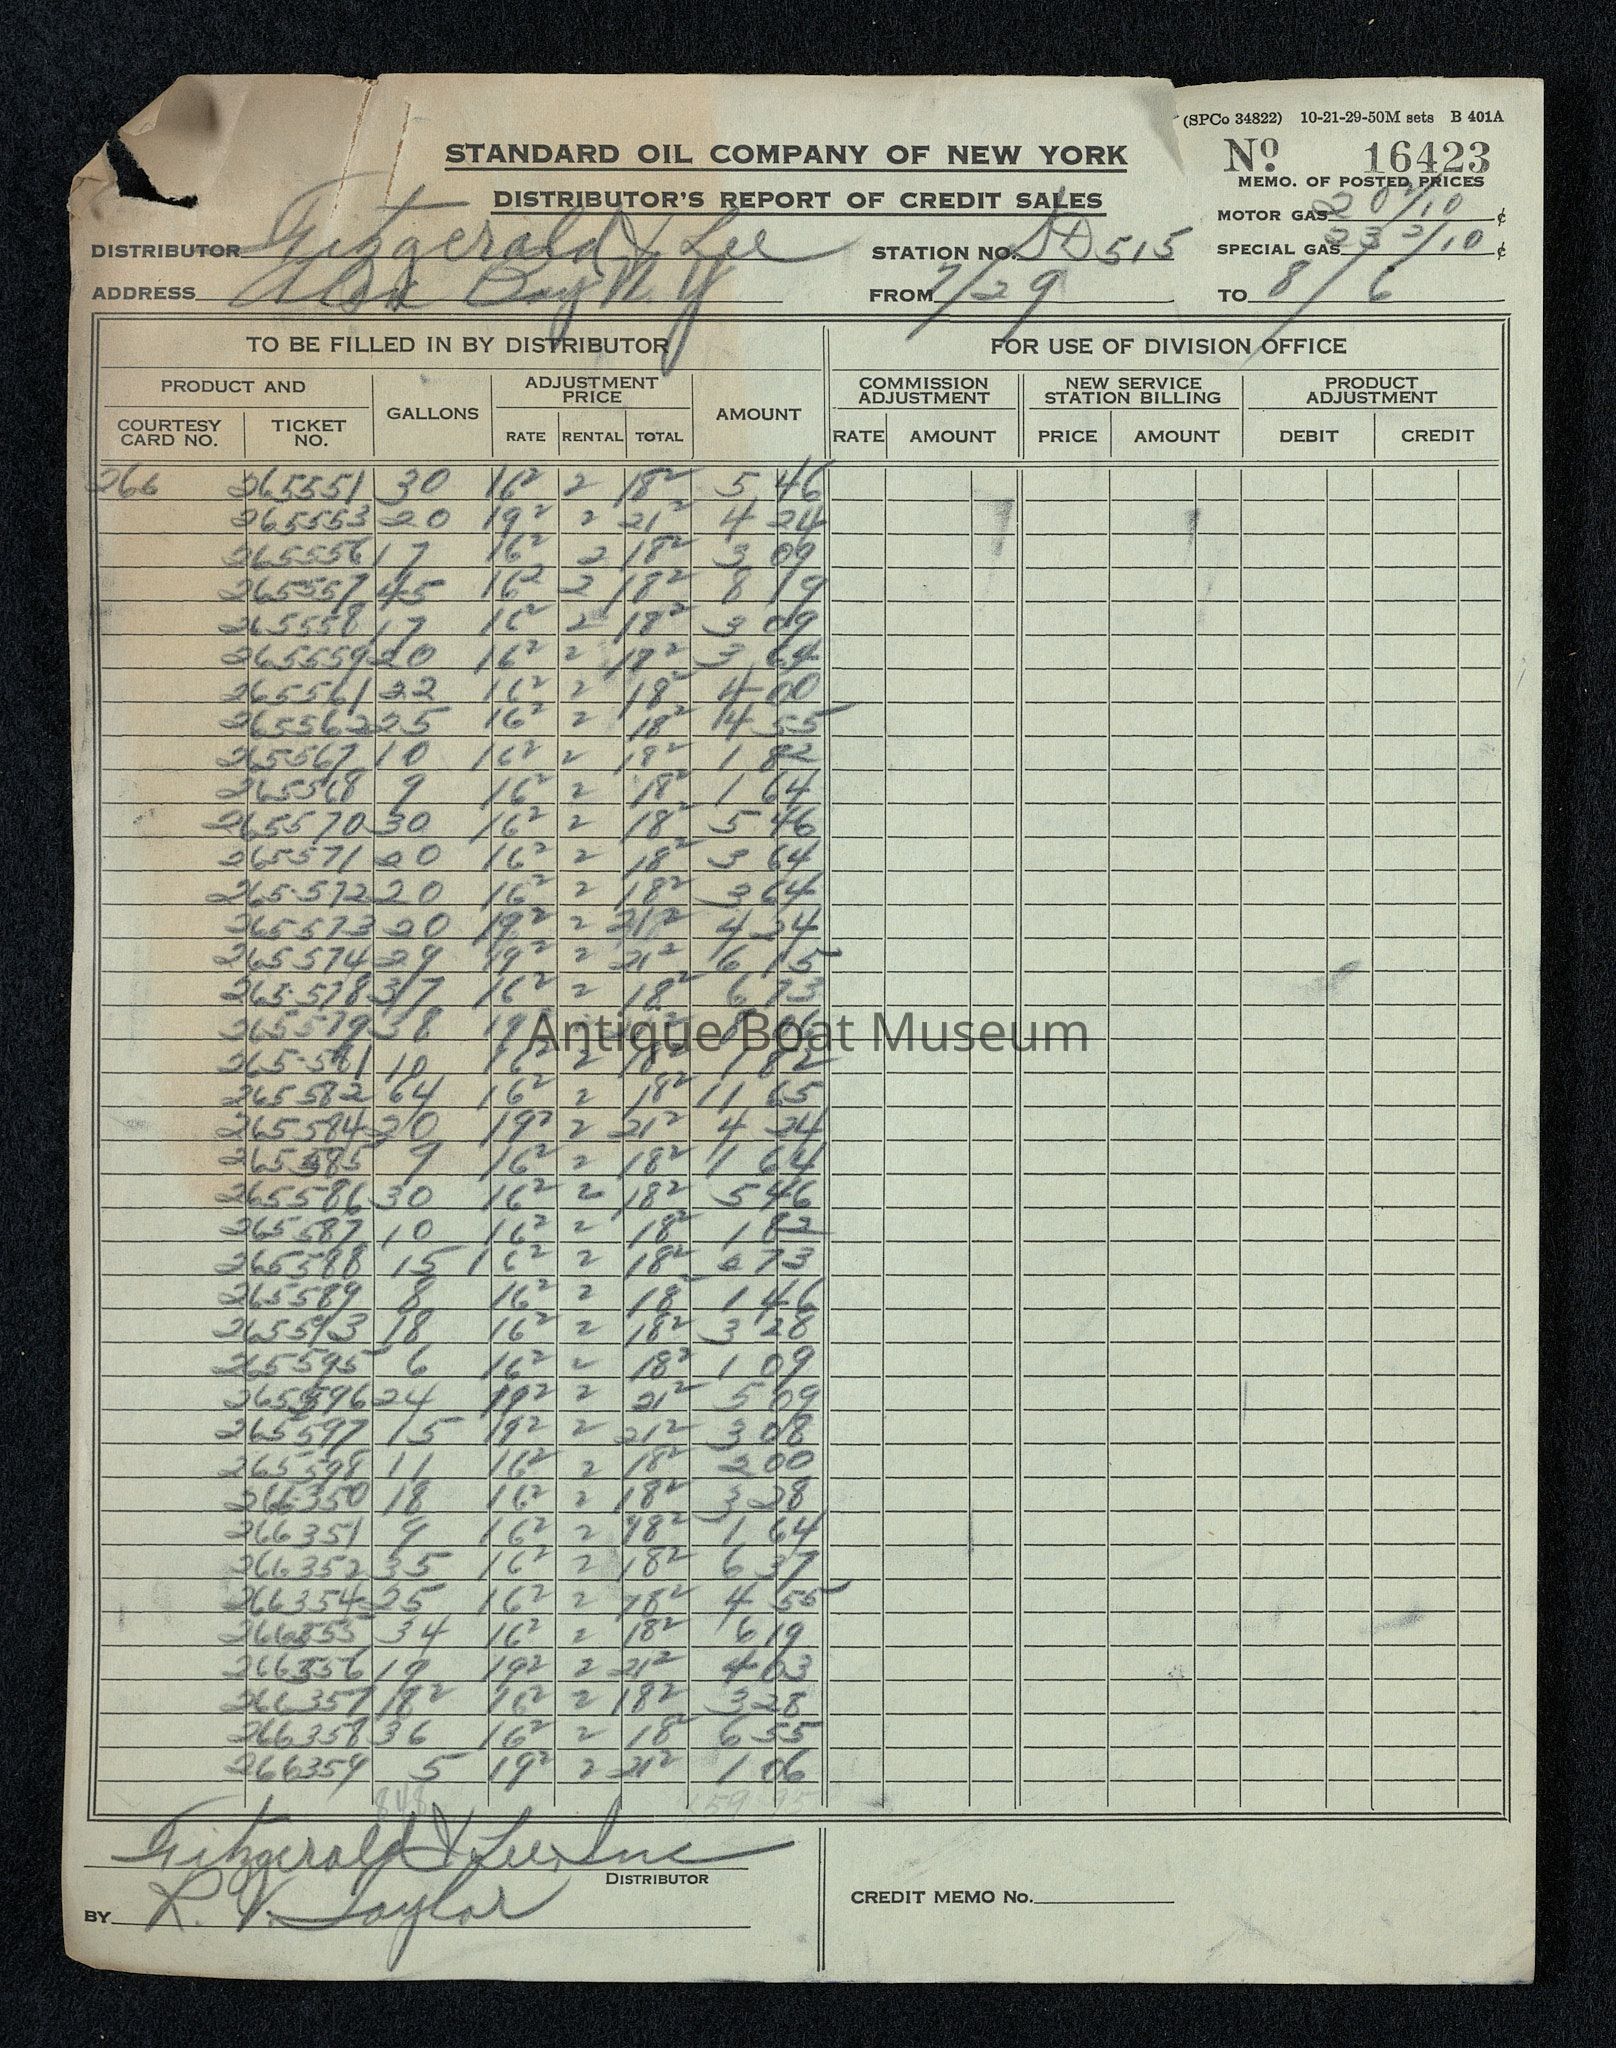 (SPCo 34822) 10-21-29-50M sets B 401A
STANDARD OIL COMPANY OF NEW YORK
No 16423
DISTRIBUTOR'S REPORT OF CREDIT SALES
MEMO. OF POSTED PRICES
MOTOR GAS 20 2/10 ¢
DISTRIBUTOR Fitzgerald & Lee STATION NO. SD 515 SPECIAL GAS 23 2/10 ¢
ADDRESS Alex Bay N.Y FROM 7/29 TO 8/6
TO BE FILLED IN BY DISTRIBUTOR FOR USE OF DIVISION OFFICE
PRODUCT AND GALLONS ADJUSTMENT PRICE AMOUNT COMMISSION ADJUSTMENT NEW SERVICE STATION BILLING PRODUCT ADJUSTMENT
COURTESY CARD NO. TICKET NO. RATE RENTAL TOTAL RATE AMOUNT PRICE AMOUNT DEBIT CREDIT
266 265551 30 16² 2 18² 5 46
265553 20 19² 2 21² 4 24
265556 17 16² 2 18² 3 09
265557 45 16² 2 18² 8 19
265558 17 16² 2 18² 3 09
265559 20 16² 2 18² 3 64
265561 22 16² 2 18² 4 00
265562 25 16² 2 18² 4 55
265567 10 16² 2 18² 1 82
265568 9 16² 2 18² 1 64
265570 30 16² 2 18² 5 46
265571 20 16² 2 18² 3 64
265572 20 16² 2 18² 3 64
265573 20 19² 2 21² 4 24
265574 29 19² 2 21² 6 15
265578 37 16² 2 18² 6 73
265579 38 19² 8 06
Antique Boat Museum
265581 10 16² 2 18² 1 82
265582 64 16² 2 18² 11 65
265584 20 19² 2 21² 4 24
265585 9 16² 2 18² 1 64
265586 30 16² 2 18² 5 46
265587 10 16² 2 18² 1 82
265588 15 16² 2 18² 2 73
265589 8 16² 2 18² 1 46
265593 18 16² 2 18² 3 28
265595 6 16² 2 18² 1 09
265596 24 19² 2 21² 5 09
265597 15 19² 2 21² 3 08
265598 11 16² 2 18² 2 00
266350 18 16² 2 18² 3 28
266351 9 16² 2 18² 1 64
266352 35 16² 2 18² 6 37
266354 25 16² 2 18² 4 55
266355 34 16² 2 18² 6 19
266356 19 19² 2 21² 4 03
266357 18² 16² 2 18² 3 28
266358 36 16² 2 18² 6 55
266359 5 19² 2 21² 1 06
848
Fitzgerald & Lee, Inc
DISTRIBUTOR
CREDIT MEMO No.
BY R. V. Taylor